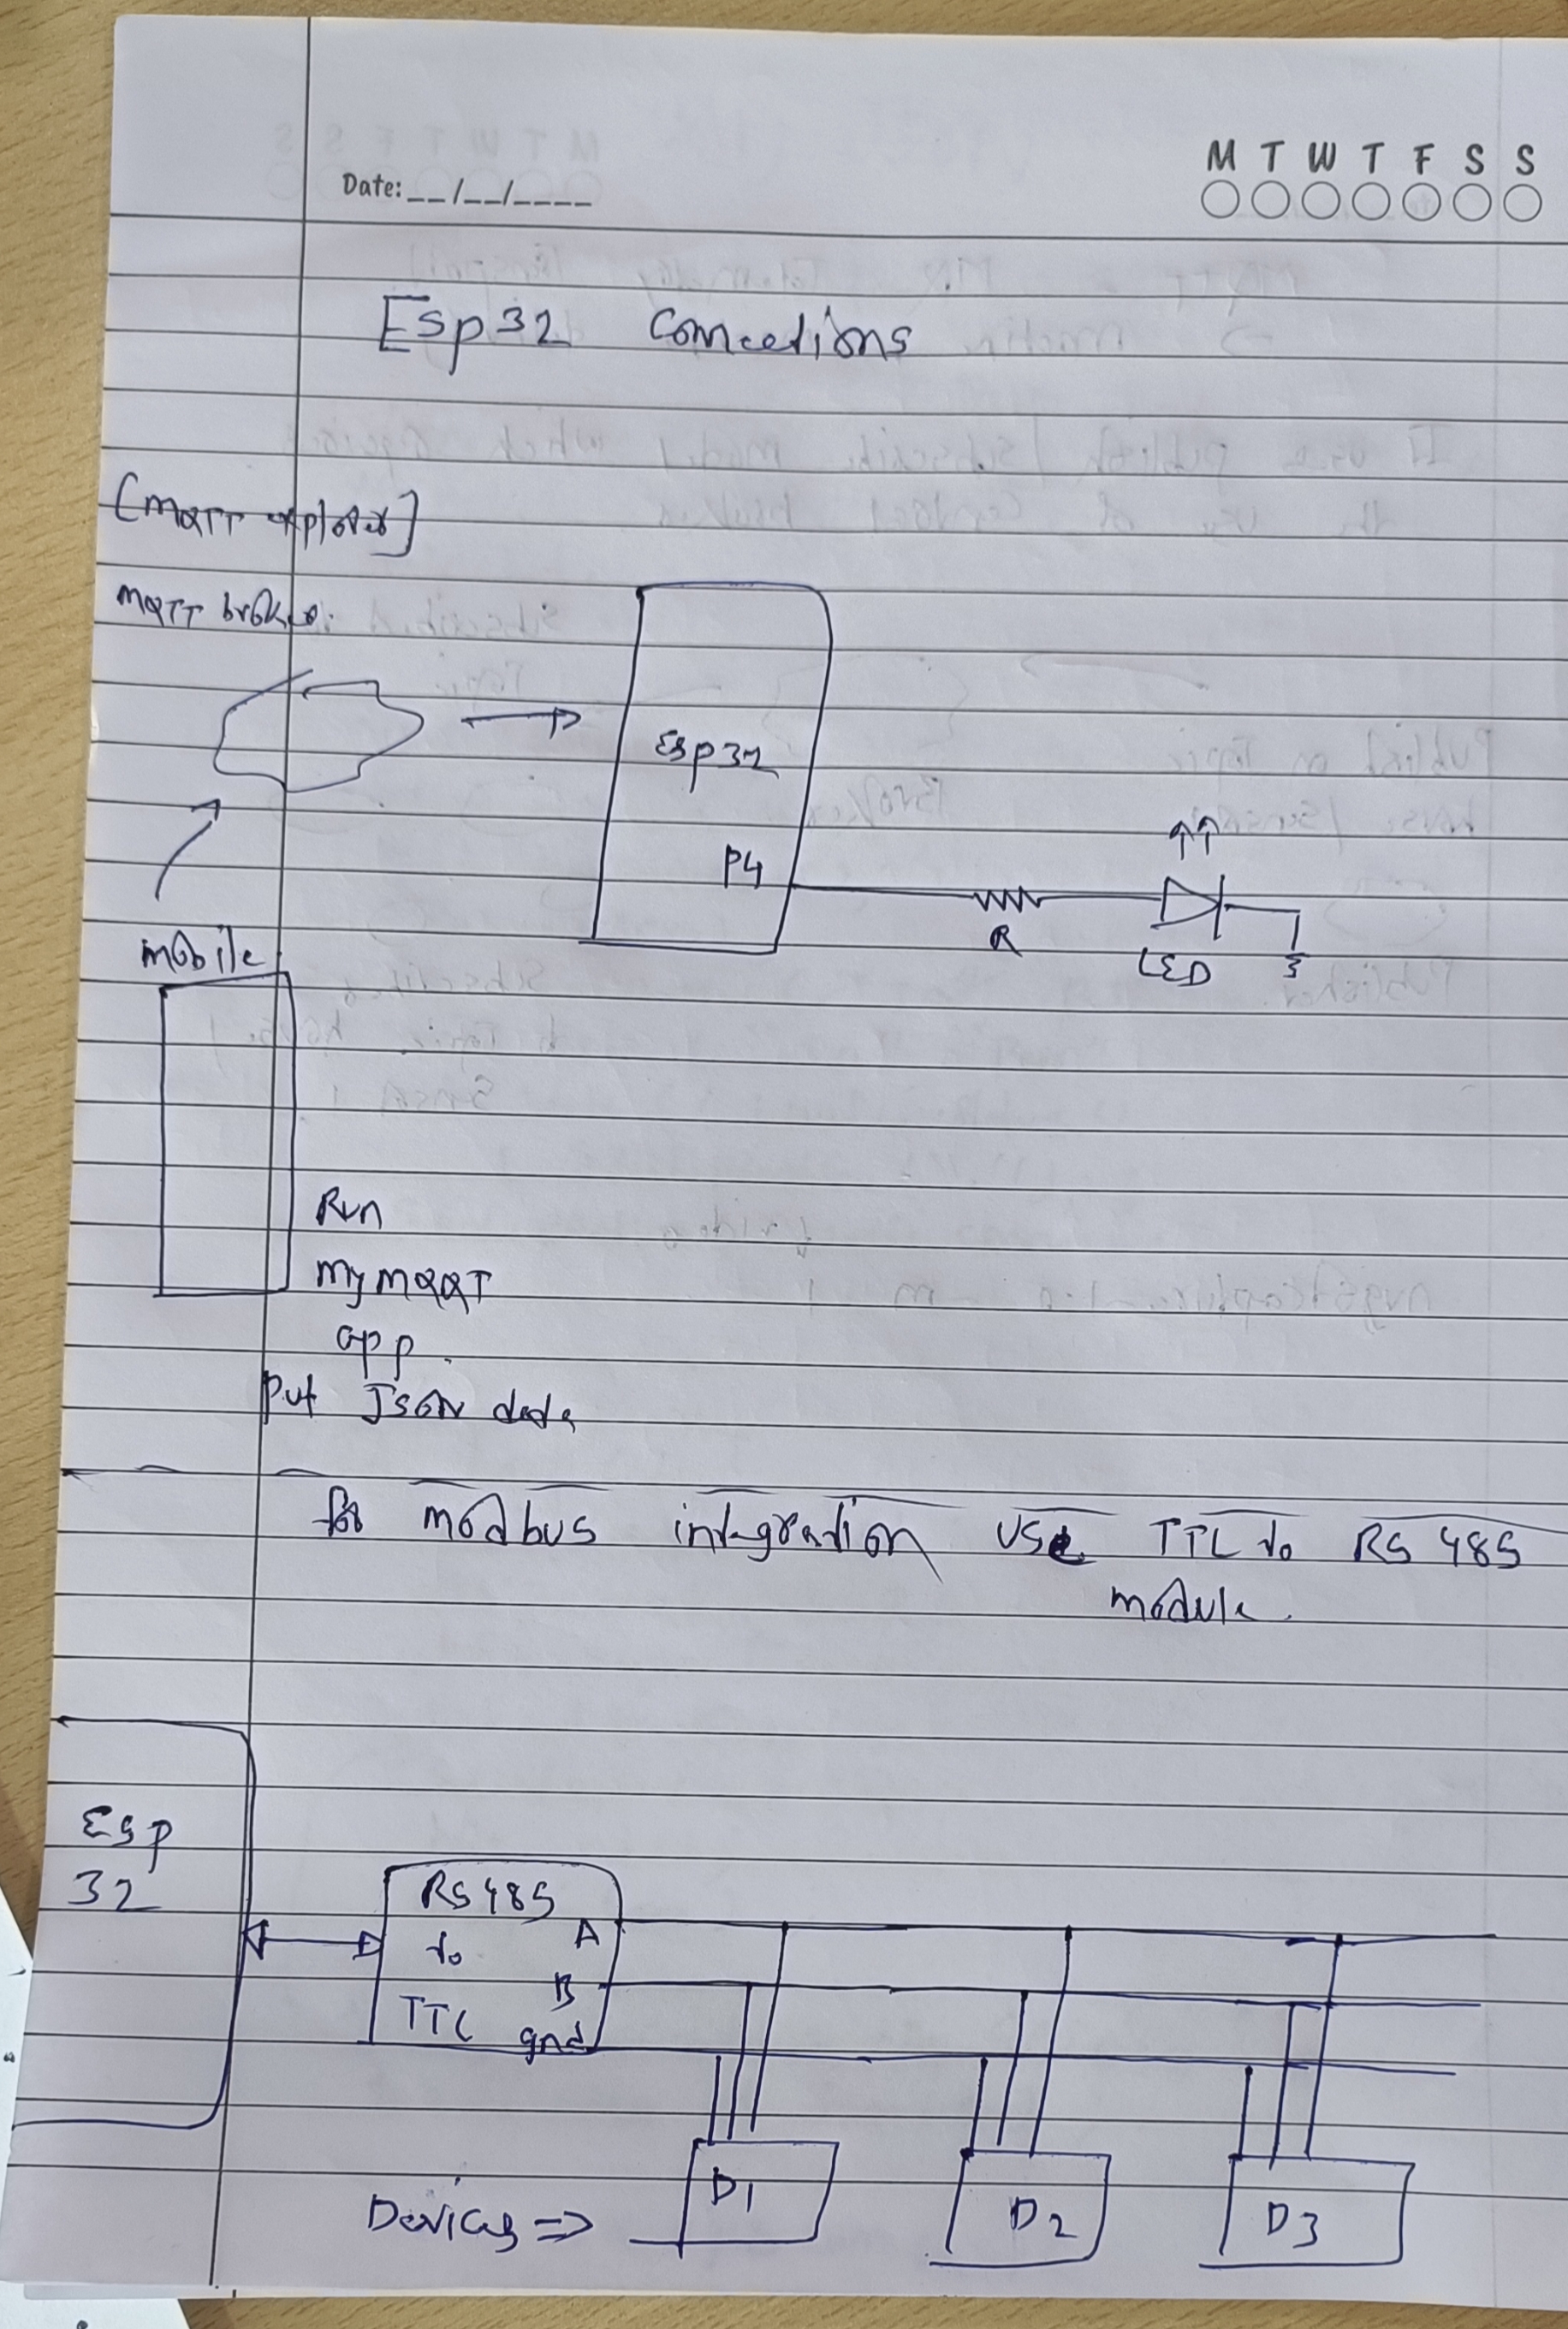 M T W T F S S
Date:__/__/____
Esp32 Connections
[MQTT explorer]
MQTT broker
Esp32
P4
R
LED
mobile
Run
my MQQT
app
put Json data
for modbus integration use TTL to RS 485
module
Esp
32
RS 485
to
TTL
A
B
gnd
D1
D2
D3
Devices =>